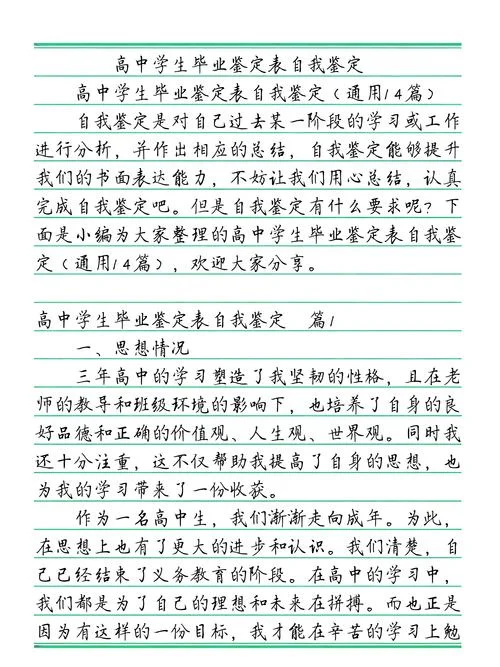 高中学生毕业鉴定表自我鉴定
高中学生毕业鉴定表自我鉴定（通用14篇）
自我鉴定是对自己过去某一阶段的学习或工作
进行分析，并作出相应的总结，自我鉴定能够提升
我们的书面表达能力，不妨让我们用心总结，认真
完成自我鉴定吧。但是自我鉴定有什么要求呢？下
面是小编为大家整理的高中学生毕业鉴定表自我鉴
定（通用14篇），欢迎大家分享。
高中学生毕业鉴定表自我鉴定 篇1
一、思想情况
三年高中的学习塑造了我坚韧的性格，且在老
师的教导和班级环境的影响下，也培养了自身的良
好品德和正确的价值观、人生观、世界观。同时我
还十分注重，这不仅帮助我提高了自身的思想，也
为我的学习带来了一份收获。
作为一名高中生，我们渐渐走向成年。为此，
在思想上也有了更大的进步和认识。我们清楚，自
己已经结束了义务教育的阶段。在高中的学习中，
我们都是为了自己的理想和未来在拼搏。而也正是
因为有这样的一份目标，我才能在辛苦的学习上勉